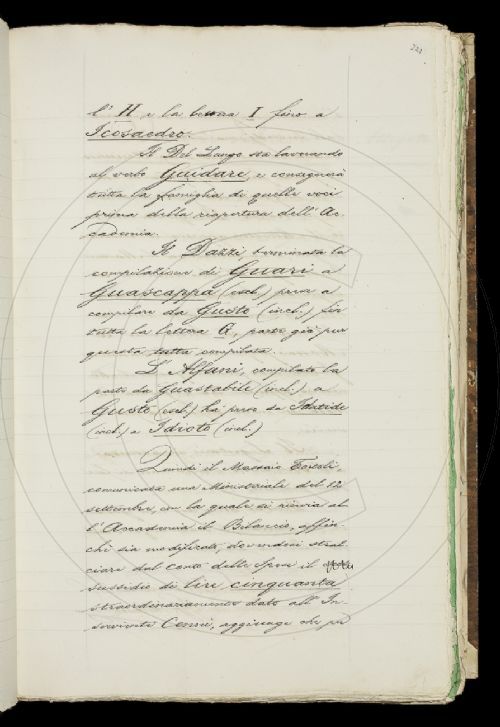 l' H e la lettera I fino a
Icosaedro.
Il Del Lungo sta lavorando
al verbo Guidare, e consegnerà
tutta la famiglia di quelle voci
prima della riapertura dell'Ac-
cademia.
Il Dazzi, terminata la
compilazione di Guari a
Guascappa (escl.) prese a
compilare da Gusto (incl.) fin
tutta la lettera G, parte già pur
questa tutta compilata.
L'Alfani, compilata la
parte da Guastabile (incl.) a
Gusto (escl.) ha preso da Idatide
(incl.) a Idioto (incl.)
Quindi il Massaio Tortoli,
comunicata una Ministeriale del 12
settembre, con la quale si rinvia al-
l'Accademia il Bilancio, affin-
chè sia modificato, dovendosi stral-
ciare dal conto delle spese il
sussidio di lire cinquanta
straordinariamente dato all'In-
serviente Cenni, aggiunge che pe